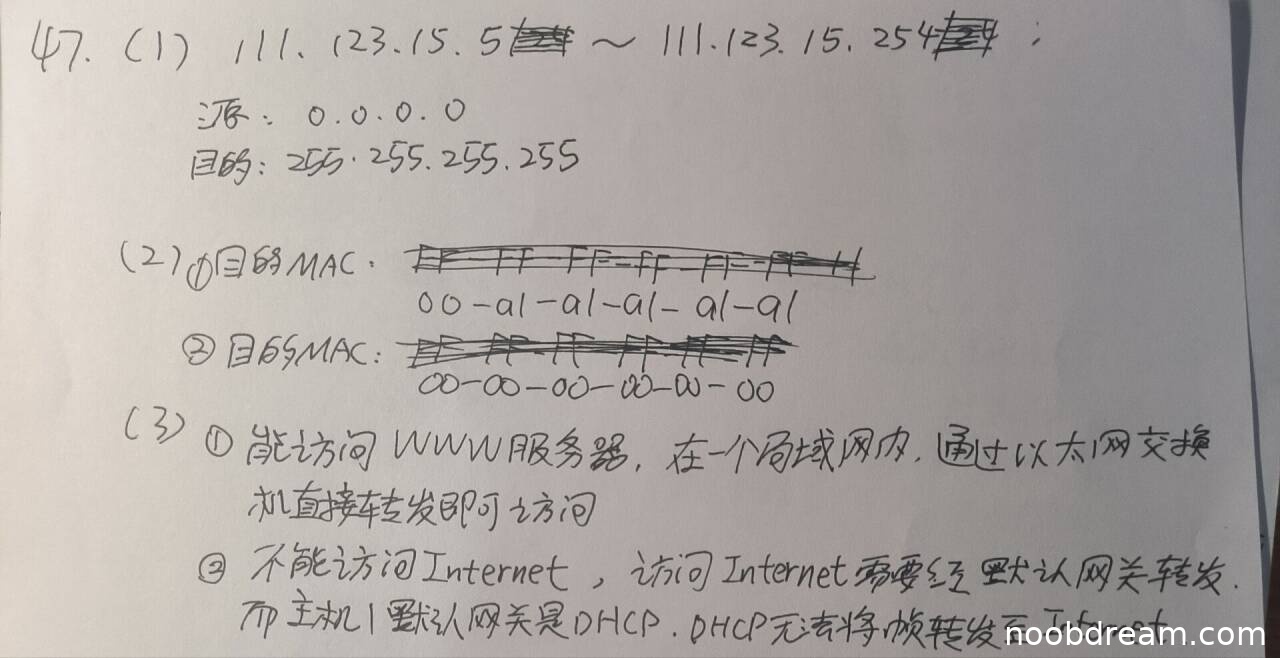 47. (1) 111.123.15.5 ~ 111.123.15.254 ;
源: 0.0.0.0
目的: 255.255.255.255
(2) ①目的MAC:
00-a1-a1-a1-a1-a1
②目的MAC:
00-00-00-00-00-00
(3) ① 能访问 WWW服务器, 在一个局域网内, 通过以太网交换
机直接转发即可访问
② 不能访问Internet , 访问Internet需要经默认网关转发.
而主机1默认网关是DHCP. DHCP无法将帧转发至Internet
noobdream.com